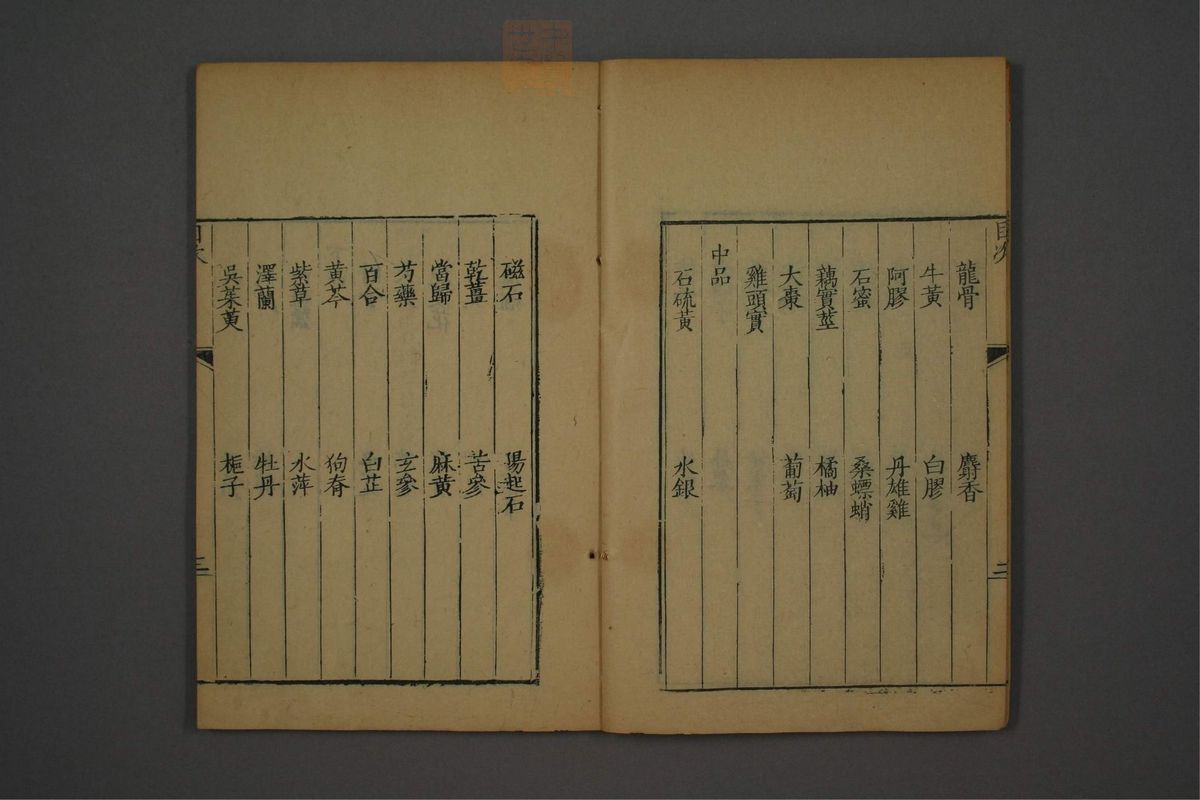 目次
龍骨 麝香
牛黃 白膠
阿膠 丹雄雞
石蜜 桑螵蛸
藕實莖 橘柚
大棗 葡萄
雞頭實
中品
石硫黃 水銀
二
磁石 陽起石
乾薑 苦參
當歸 麻黃
芍藥 玄參
百合 白芷
黃芩 狗脊
紫草 水萍
澤蘭 牡丹
吳茱萸 梔子
目次
三